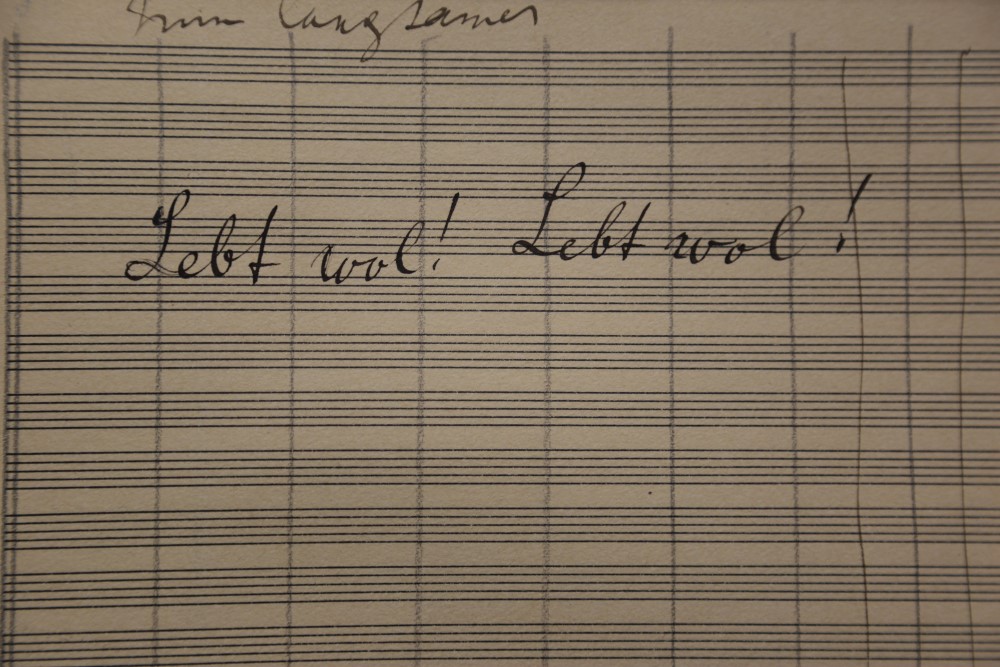 langsamer
Lebt wol! Lebt wol!